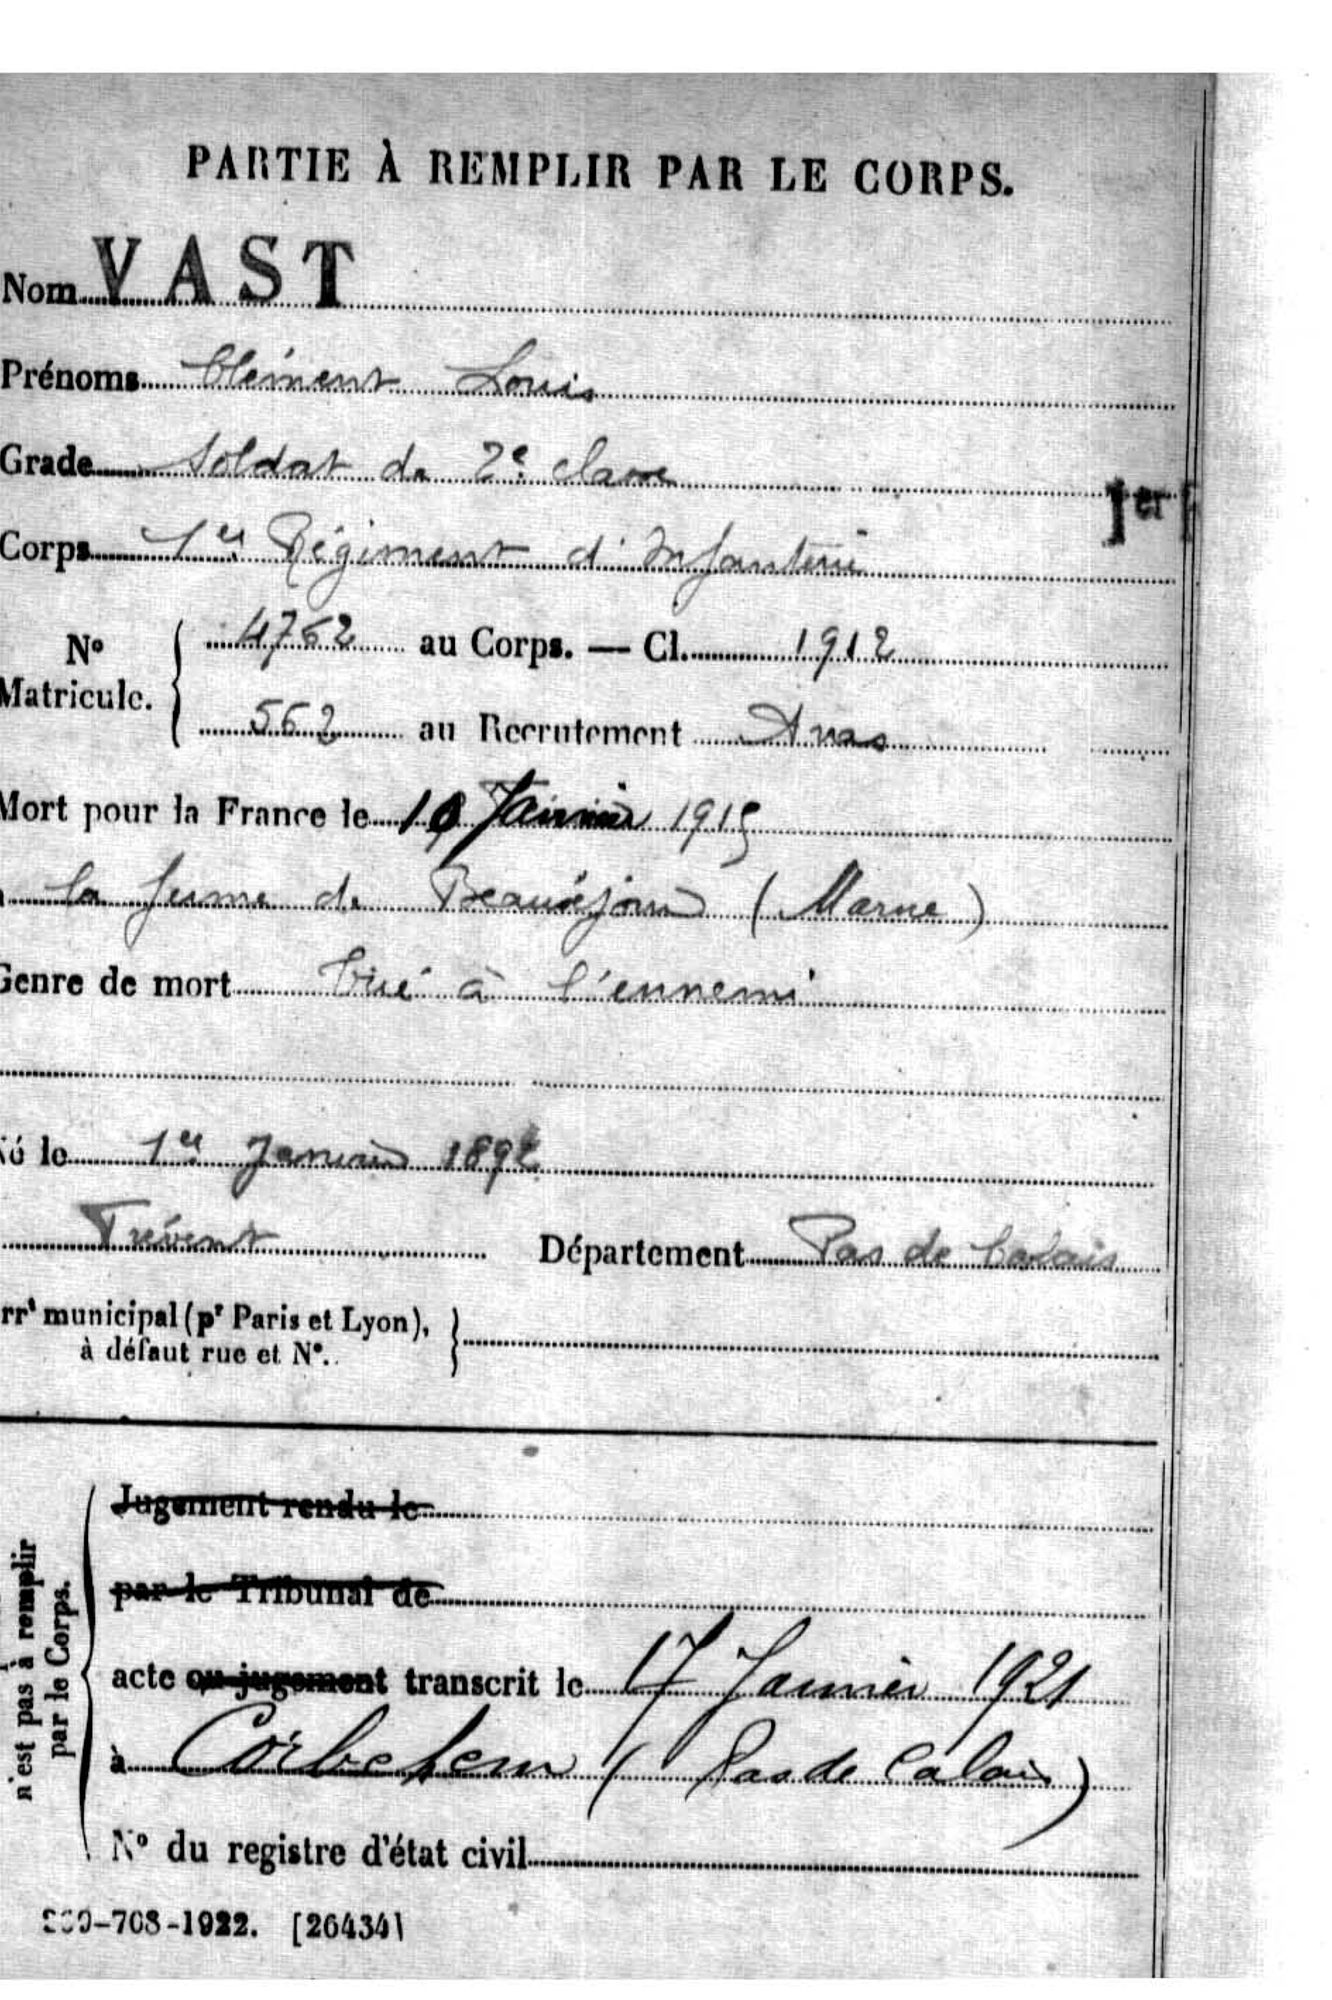 PARTIE À REMPLIR PAR LE CORPS.
Nom VAST
Prénoms Clément Louis
Grade Soldat de 2e classe
1er
Corps 1er Régiment d'Infanterie
N° Matricule. 4762 au Corps. — Cl. 1912
562 au Recrutement Arras
Mort pour la France le Janvier 1915
la ferme de Beauséjour (Marne)
Genre de mort tué à l'ennemi
Né le 1er Janvier 1892
Frévent Département Pas de Calais
rrt municipal (pr Paris et Lyon),
à défaut rue et N°.
n'est pas à remplir
par le Corps.
Jugement rendu le
par le Tribunal de
acte ou jugement transcrit le 17 Janvier 1921
à Corbehem (Pas de Calais)
N° du registre d'état civil
-708-1922. [26434]